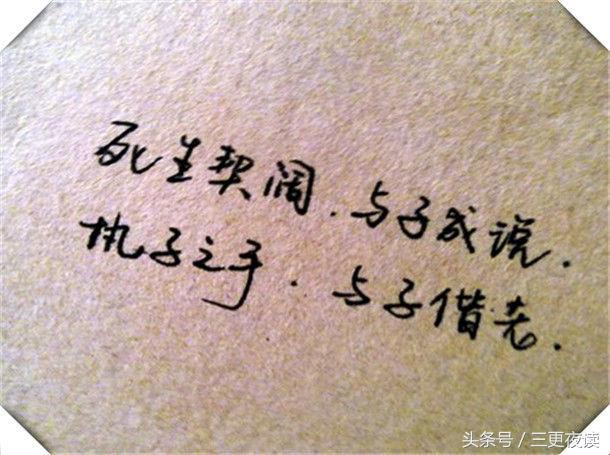 死生契阔.与子成说.
执子之手.与子偕老.
头条号／三更夜读